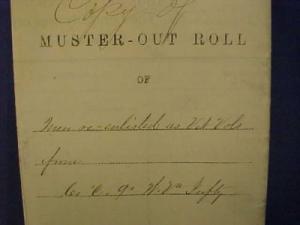 Copy of
MUSTER-OUT ROLL
OF
Men re-enlisted as Vet Vols
from
Co "C" 9th W. Va Infty